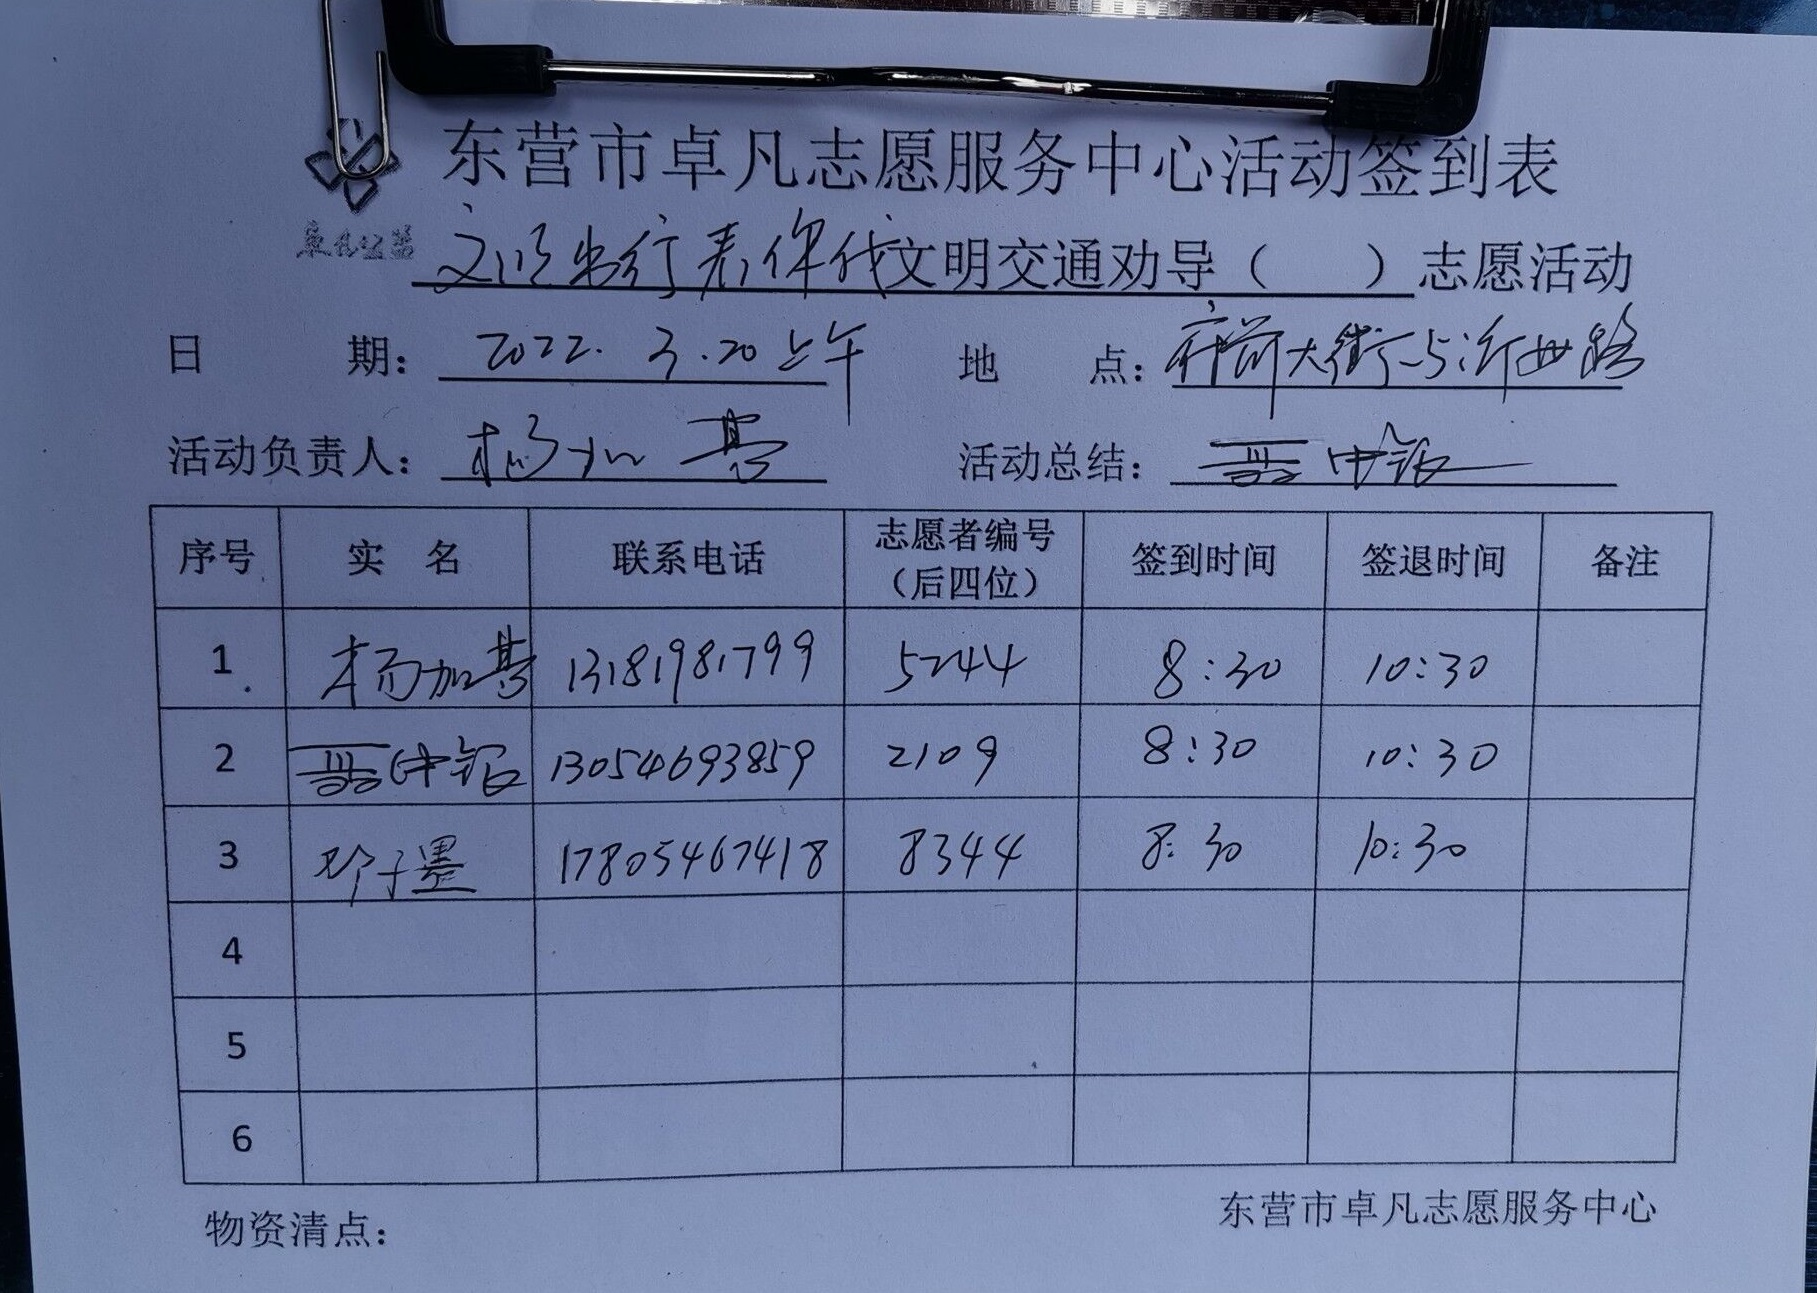 东营市卓凡志愿服务中心活动签到表
文明出行 文明交通劝导（ ）志愿活动
日 期： 2022.3.20上午 地 点： 府前大街与沂州路
活动负责人： 杨加基 活动总结：
序号 实 名 联系电话 志愿者编号（后四位） 签到时间 签退时间 备注
1 杨加基 13181981799 5244 8:30 10:30
2 13054693859 2109 8:30 10:30
3 邓子墨 17805467418 8344 8:30 10:30
4
5
6
物资清点：
东营市卓凡志愿服务中心